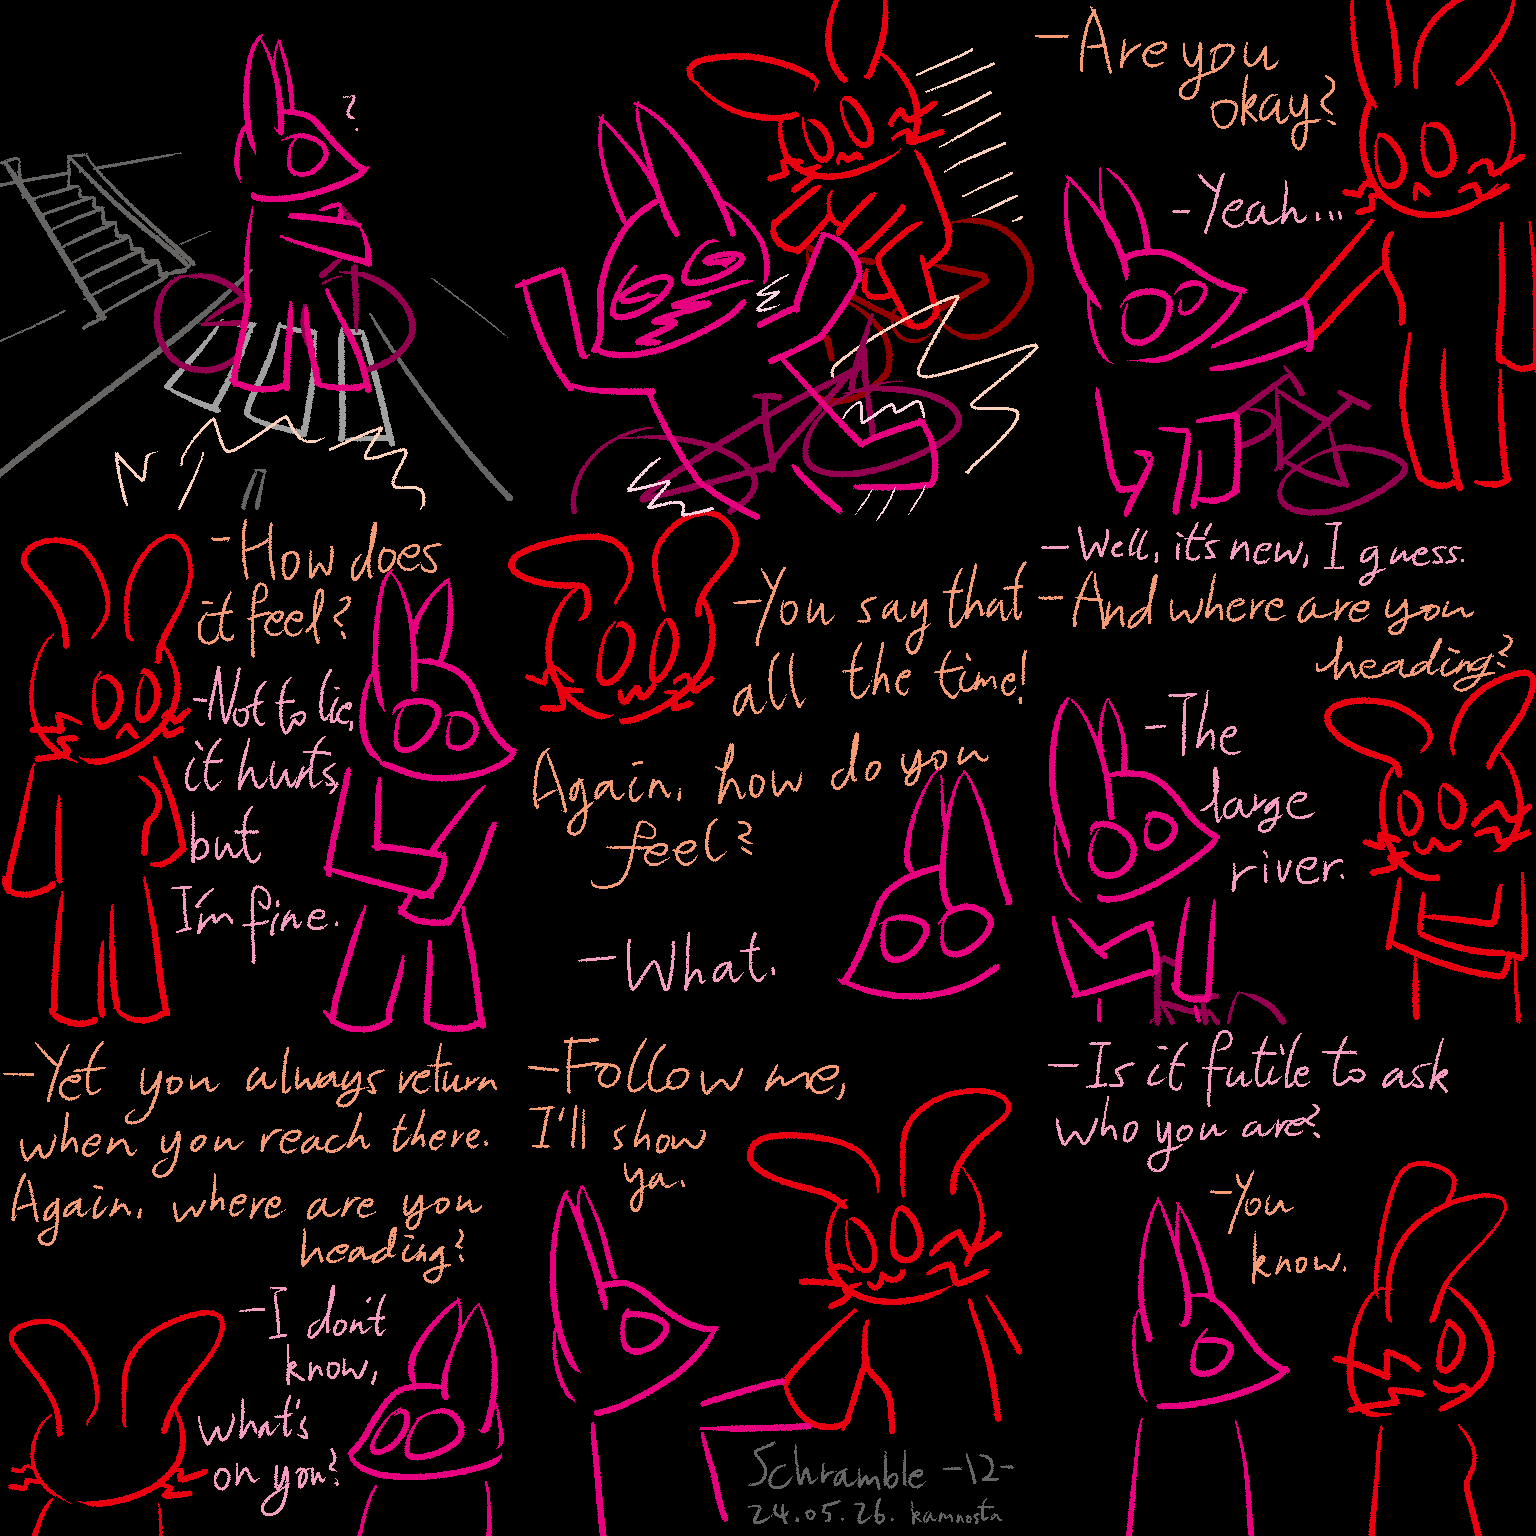 ?
-Are you
okay?
-Yeah...
-How does
it feel?
-Not to lie,
it hurts,
but
I'm fine.
-You say that
all the time!
Again, how do you
feel?
-What.
-Well, it's new, I guess.
-And where are you
heading?
-The
large
river.
-Yet you always return
when you reach there.
Again, where are you
heading?
-I don't
know,
what's
on you?
-Follow me,
I'll show
ya.
-Is it futile to ask
who you are?
-You
know.
Schramble -12-
24.05.26. kamnosta